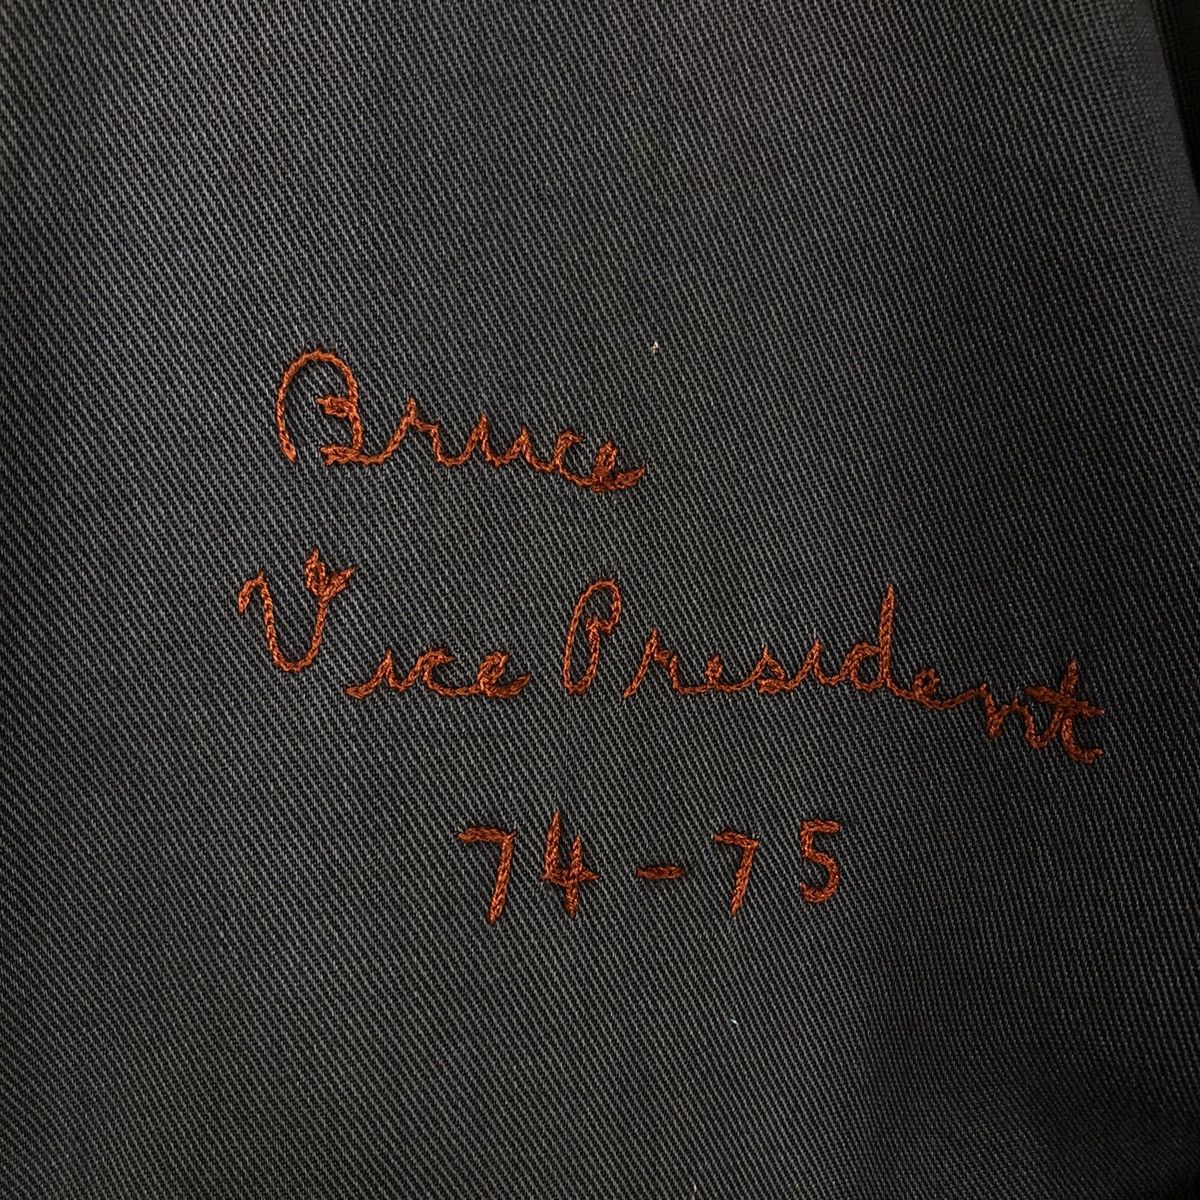 Bruce
Vice President
74-75